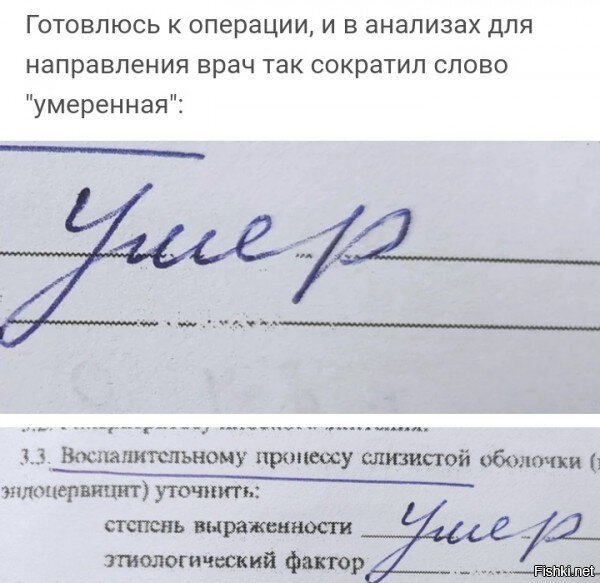 Готовлюсь к операции, и в анализах для
направления врач так сократил слово
"умеренная":
Умер
3.3. Воспалительному процессу слизистой оболочки (
эндоцервицит) уточнить:
степень выраженности Умер
этиологический фактор
Fishki.net